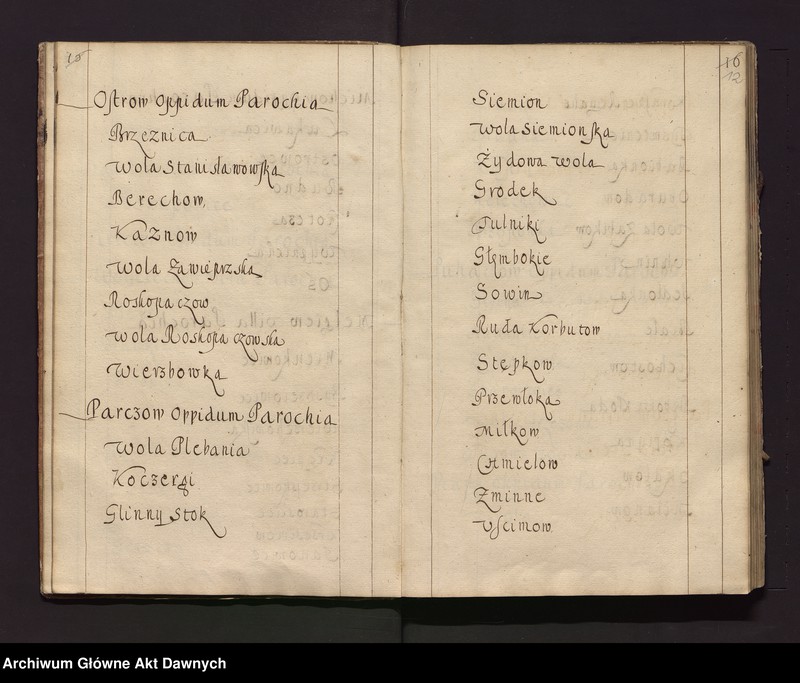 15
Ostrow Oppidum Parochia
Brzeznica
Wola Stanisławowska
Berechow
Kaznow
Wola Zawieprzska
Roskopaczow
Wola Roskopaczowska
Wierzbowka
Parczow Oppidum Parochia
Wola Plebania
Koczergi
Glinny Stok
16
12
Siemion
Wola Siemionska
Żydowa Wola
Grodek
Tulniki
Głymbokie
Sowin
Ruda Korbutow
Stepkow
Przewłoka
Miłkow
Chmielow
Zminne
Uscimow
Archiwum Główne Akt Dawnych